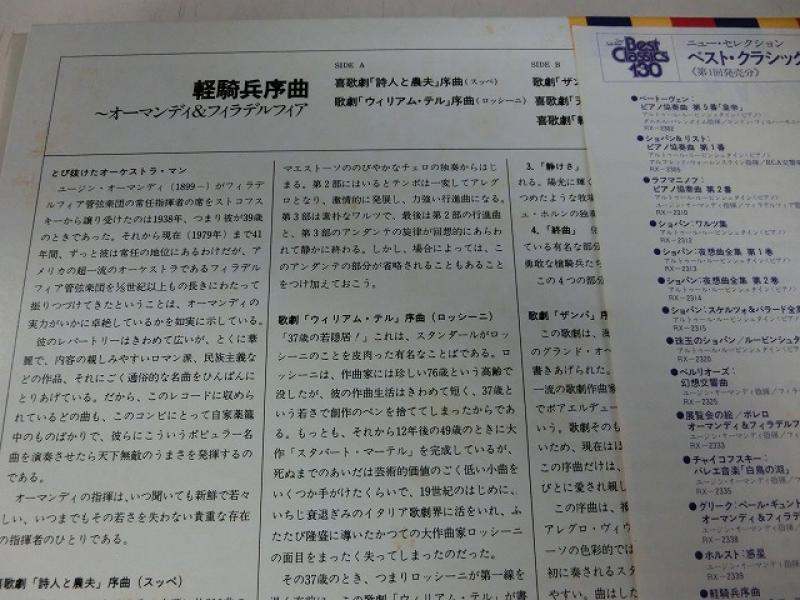 軽騎兵序曲
～オーマンディ&フィラデルフィア
SIDE A
喜歌劇「詩人と農夫」序曲(スッペ)
歌劇「ウィリアム・テル」序曲(ロッシーニ)
SIDE B
歌劇「ザン
喜歌劇
喜歌劇
とび抜けたオーケストラ・マン
ユージン・オーマンディ(1899−)がフィラデ
ルフィア管弦楽団の常任指揮者の席をストコフス
キーから譲り受けたのは1938年、つまり彼が39歳
のときであった。それから現在(1979年)まで41
年間、ずっと彼は常任の地位にあるわけだが、ア
メリカの超一流のオーケストラであるフィラデル
フィア管弦楽団を½世紀以上もの長きにわたって
振りつづけてきたということは、オーマンディの
実力がいかに卓絶しているかを如実に示している。
彼のレパートリーはきわめて広いが、とくに華
麗で、内容の親しみやすいロマン派、民族主義な
どの作品、それにごく通俗的な名曲をひんぱんに
とりあげている。だから、このレコードに収めら
れているどの曲も、このコンビにとって自家薬籠
中のものばかりで、彼らにこういうポピュラー名
曲を演奏させたら天下無敵のうまさを発揮するの
である。
オーマンディの指揮は、いつ聞いても新鮮で若々
しい、いつまでもその若さを失わない貴重な存在
の指揮者のひとりである。
喜歌劇「詩人と農夫」序曲(スッペ)
マエストーソののびやかなチェロの独奏からはじ
まる。第2部にはいるとテンポは一変してアレグ
ロとなり、激情的に発展し、力強い行進曲になる。
第3部は素朴なワルツで、最後は第2部の行進曲
と、第3部のアンダンテの旋律が回想的にあらわ
れて静かに終わる。しかし、場合によっては、こ
のアンダンテの部分が省略されることもあること
をつけ加えておこう。
歌劇「ウィリアム・テル」序曲(ロッシーニ)
「37歳の若隠居!」これは、スタンダールがロッ
シーニのことを皮肉った有名なことばである。ロ
ッシーニは、作曲家には珍しい76歳という高齢で
没したが、彼の作曲生活はきわめて短く、37歳と
いう若さで創作のペンを捨ててしまったからであ
る。もっとも、それから12年後の49歳のときに大
作「スタバート・マーテル」を完成しているが、
死ぬまでのあいだは芸術的価値のごく低い小曲を
いくつか手がけたくらいで、19世紀のはじめに、
いちじ衰退ぎみのイタリア歌劇界に活をいれ、ふ
たたび隆盛に導いたかつての大作曲家ロッシーニ
の面目をまったく失ってしまったのだった。
その37歳のとき、つまりロッシーニが第一線を
3.「静けさ」
れる。陽光に輝く
つめたような牧場
ュ・ホルンの独奏
4.「終曲」
ている有名な部分
勇敢な槍騎兵たち
この4つの部分
歌劇「ザンパ」序
この歌劇は、
のグランド・オペ
書きあげられた。
一流の歌劇作曲家
でボアエルデュー
いう。歌劇そのも
いため、現在は
この序曲だけは、
びとに愛され親し
この序曲は、
アレグロ・ヴィヴ
ーソの色彩的では
初に奏されるス
やすい。曲はした
Best
Classics
130
ニュー・セレクション
ベスト・クラシック
《第1回発売分》
●ベートーヴェン:
ピアノ協奏曲 第5番「皇帝」
アルトゥール・ルービンシュタイン(ピアノ)
RX−2302
●ショパン&リスト:
ピアノ協奏曲 第1番
アルトゥール・ルービンシュタイン(ピアノ)
RX−2305
●ラフマニノフ:
ピアノ協奏曲 第2番
アルトゥール・ルービンシュタイン(ピアノ)
RX−2310
●ショパン:ワルツ集
アルトゥール・ルービンシュタイン(ピアノ)
RX−2312
●ショパン:夜想曲全集 第1巻
アルトゥール・ルービンシュタイン(ピアノ)
RX−2313
●ショパン:夜想曲全集 第2巻
アルトゥール・ルービンシュタイン(ピアノ)
RX−2314
●ショパン:スケルツォ&バラード全集
アルトゥール・ルービンシュタイン
RX−2315
●珠玉のショパン/ルービンシュタ
RX−2320
●ベルリオーズ:
幻想交響曲
ユージン・オーマンディ指揮/フィ
RX−2325
●展覧会の絵/ボレロ
オーマンディ&フィラデルフ
RX−2333
●チャイコフスキー:
バレエ音楽「白鳥の湖」
ユージン・オーマンディ指揮/
RX−2335
●グリーク:ペール・ギュント
オーマンディ&フィラデ
RX−2338
●ホルスト:惑星
ユージン・オーマンディ指揮
RX−2339
●軽騎兵序曲